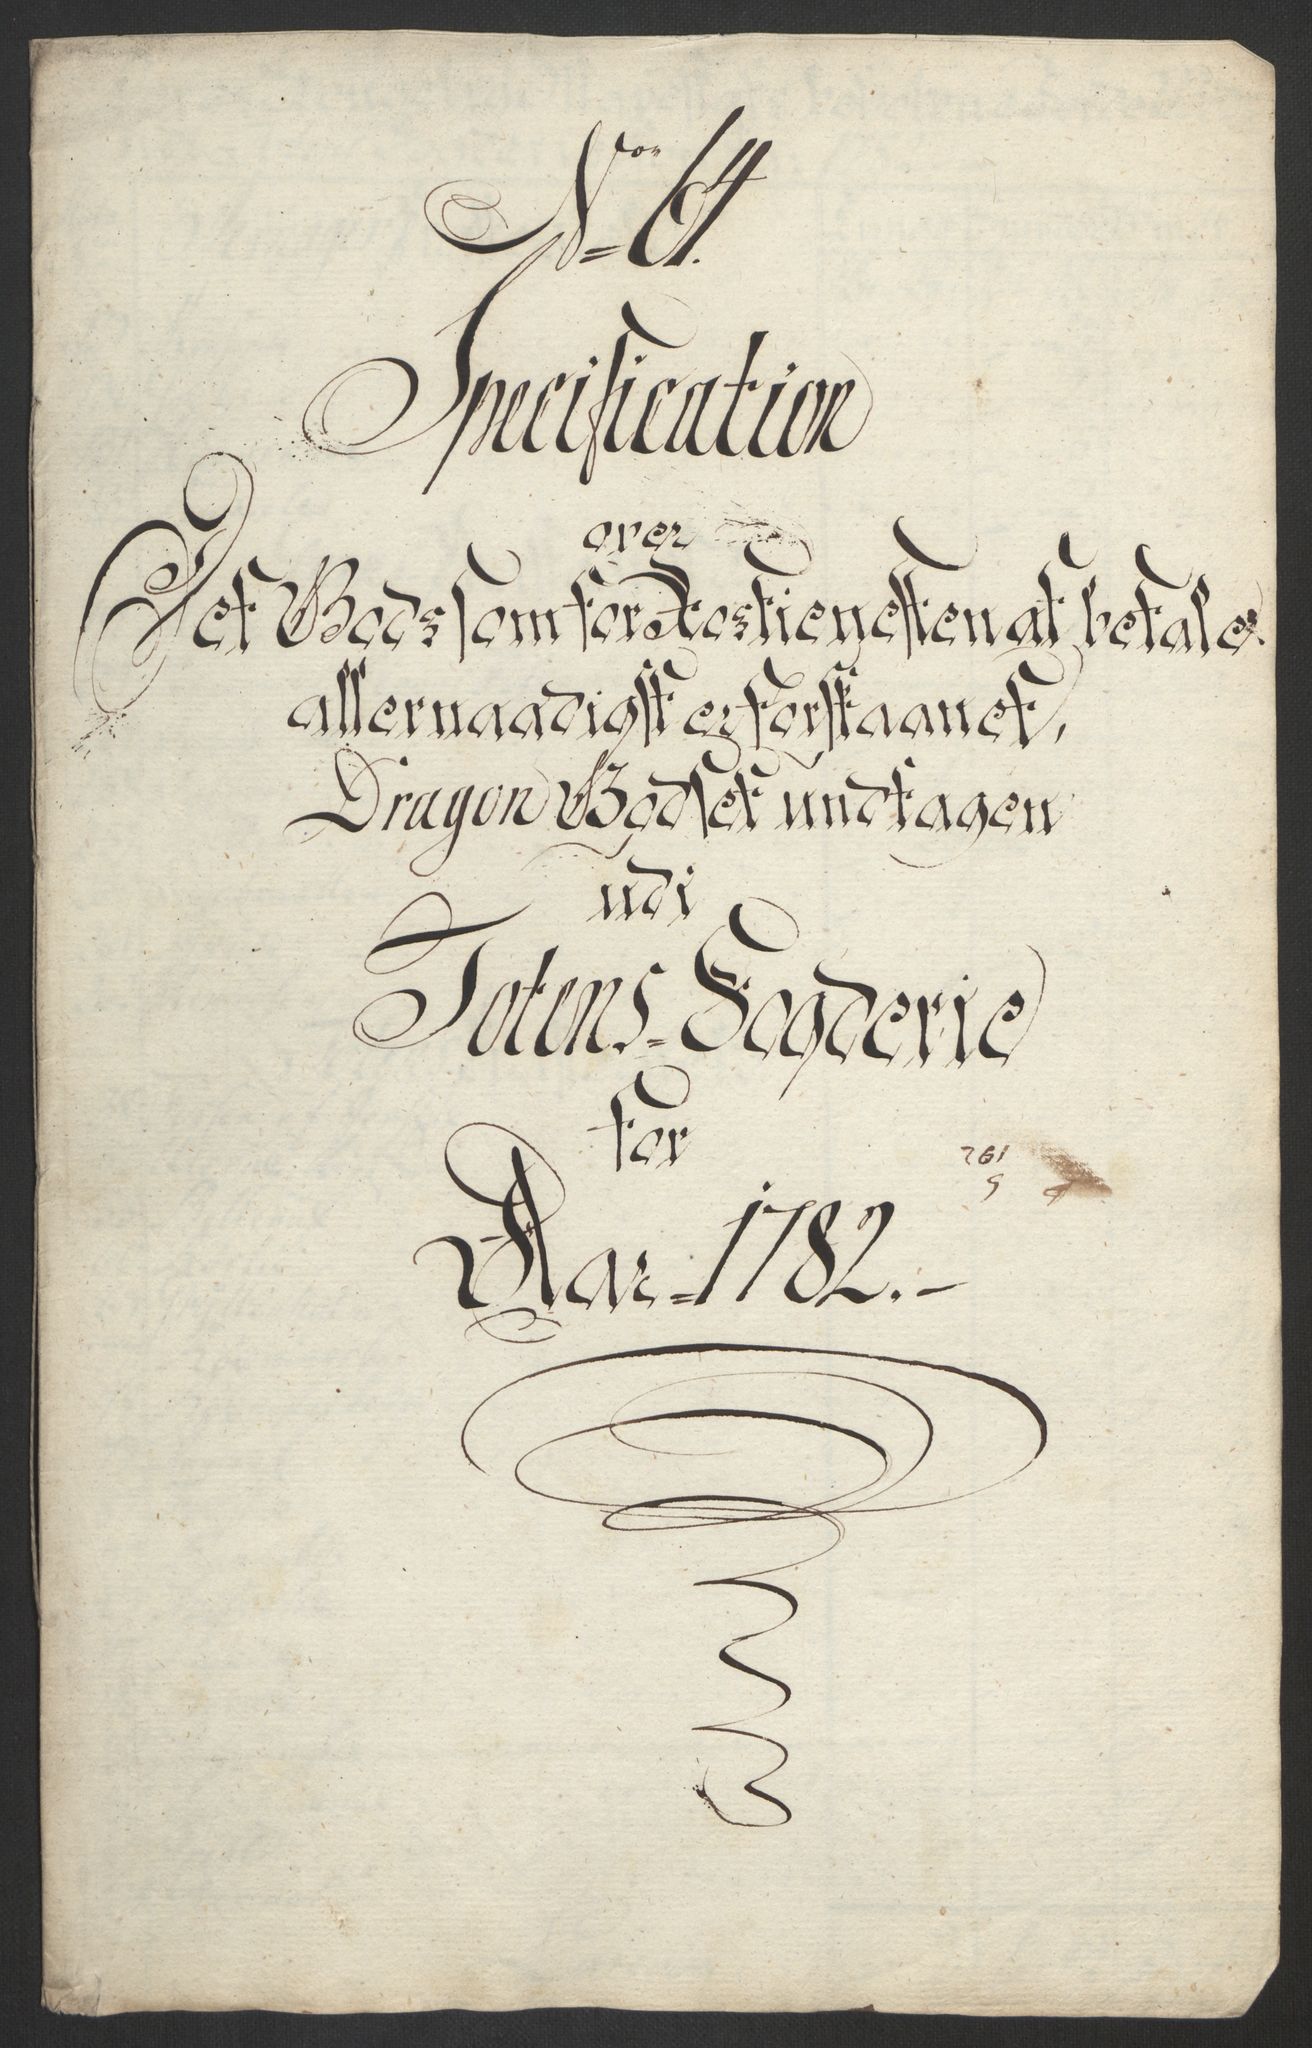 Nro 64.
Specification
over
Det Gods som for Rostienesten at betale
allernaadigst er forskaanet,
Dragon Godset undtagen
udi
Totens Fogderie
for
761
9
Aar 1782.